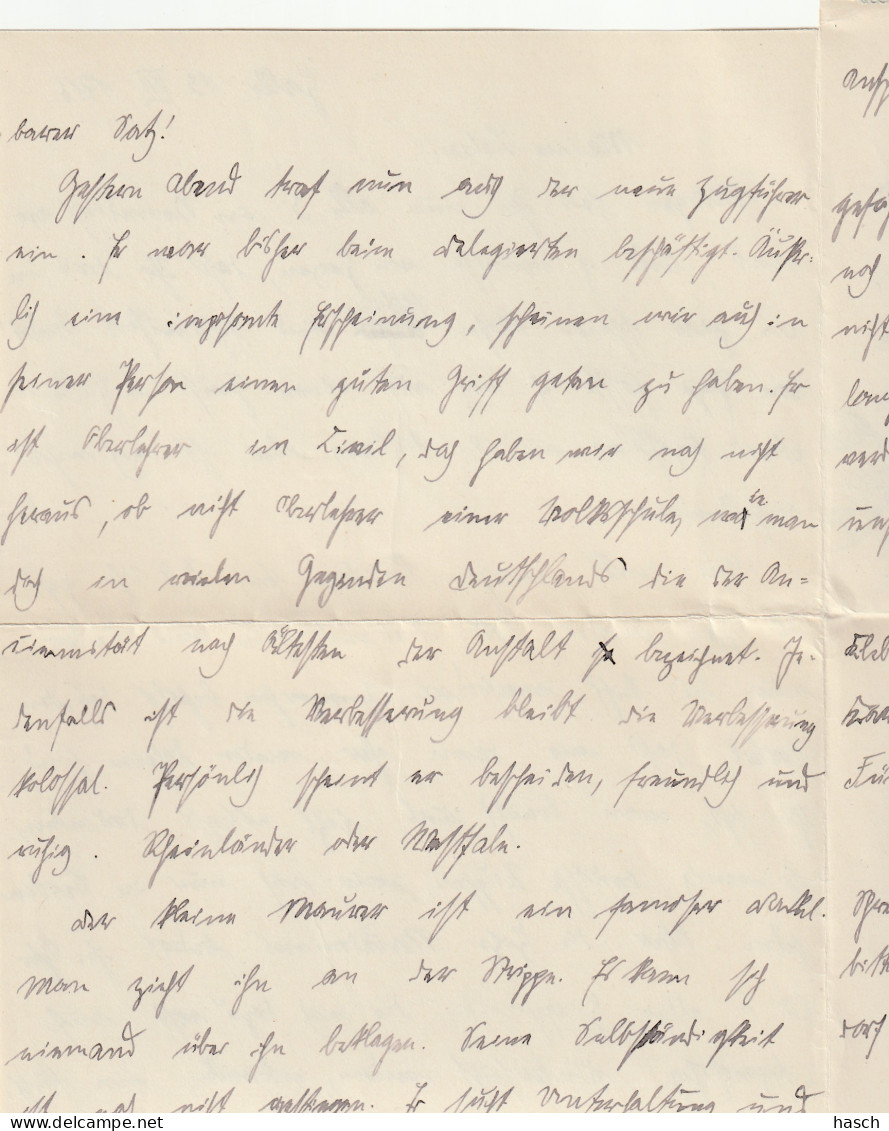 barer Satz!
Gestern Abend traf nun auch der neue Zugführer
ein. Er war bisher beim Delegierten beschäftigt. Äußer-
lich eine imposante Erscheinung, scheinen wir auch in
seiner Person einen guten Griff getan zu haben. Er
ist Oberlehrer im Civil, doch haben wir noch nicht
heraus, ob nicht Oberlehrer einer Volksschule, wie man
doch in vielen Gegenden Deutschlands die der An-
ciennität nach Ältesten der Anstalt bezeichnet. Je-
denfalls ist die Verbesserung bleibt die Verbesserung
kolossal. Persönlich scheint er bescheiden, freundlich und
ruhig. Rheinländer oder Westfale.
Der kleine Maurer ist ein famoser Dackel.
Man zieht ihn an der Strippe. Es kann sich
niemand über ihn beklagen. Seine Selbständigkeit
ist noch nicht gestiegen. Er sucht Unterhaltung und
noch
nicht
dorf
hasch